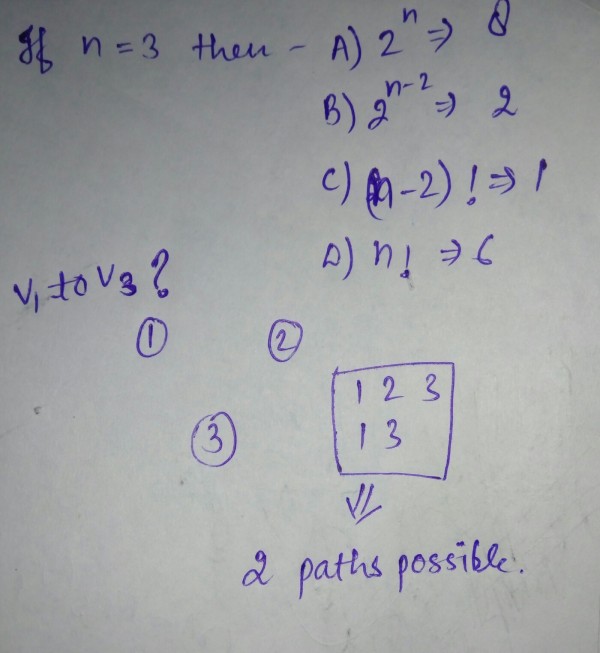 If n = 3 then - A) 2^n ⇒ 8
B) 2^{n-2} ⇒ 2
C) (n-2)! ⇒ 1
D) n! ⇒ 6
V₁ to V₃?
① ②
③
1 2 3
1 3
⇓
2 paths possible.